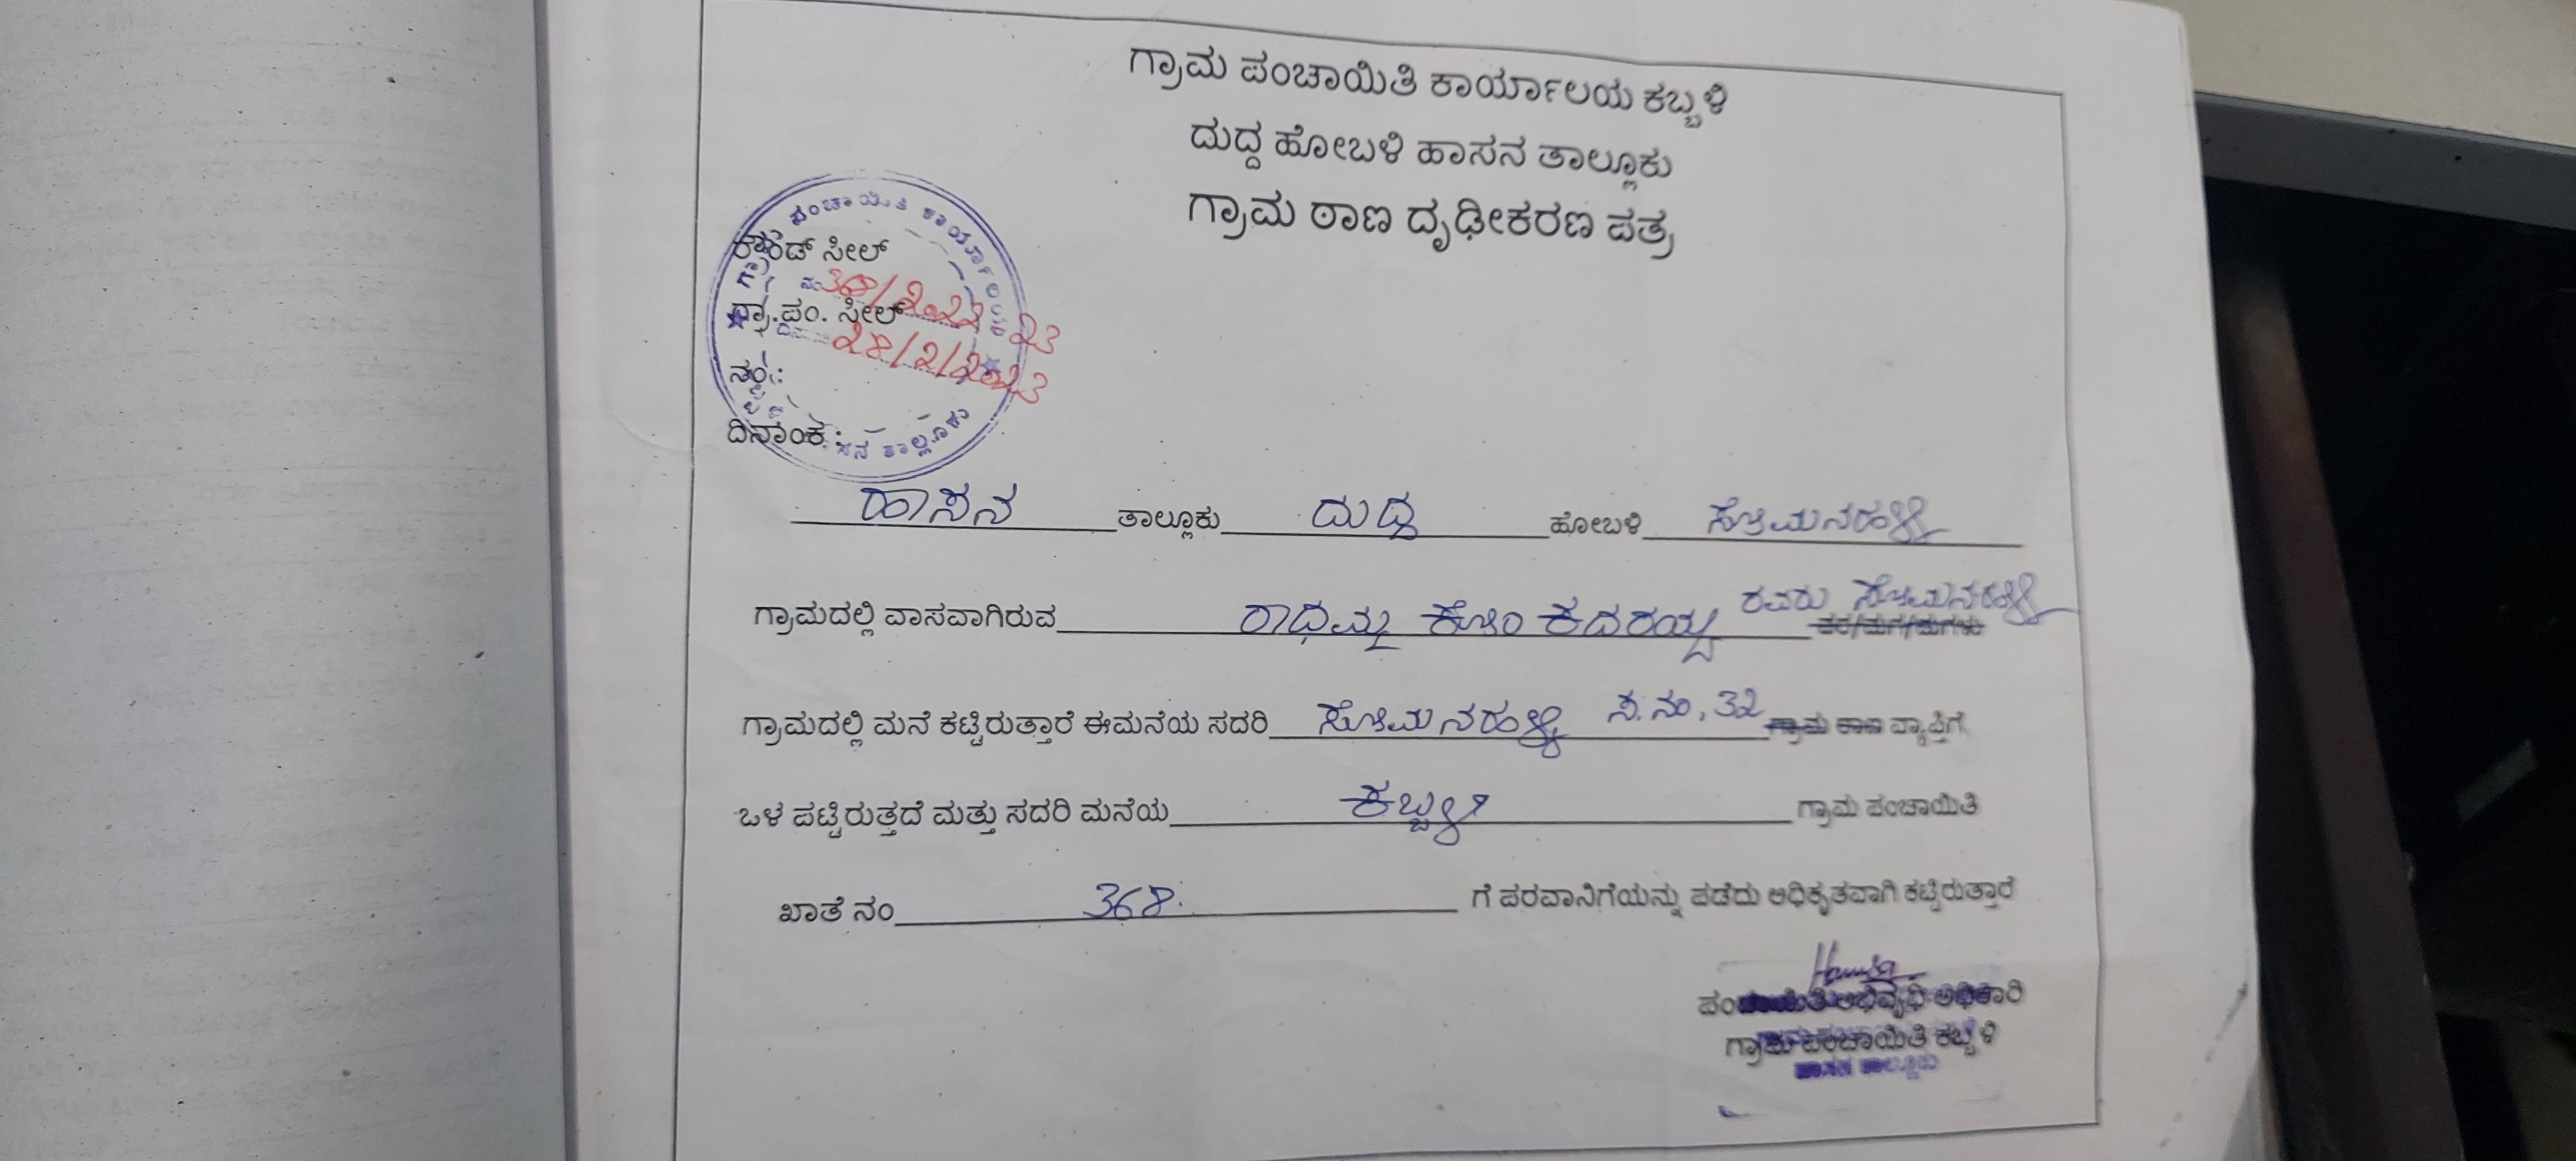 ಗ್ರಾಮ ಪಂಚಾಯಿತಿ ಕಾರ್ಯಾಲಯ ಕಬ್ಬಳಿ
ದುದ್ದ ಹೋಬಳಿ ಹಾಸನ ತಾಲ್ಲೂಕು
ಗ್ರಾಮ ಠಾಣ ದೃಢೀಕರಣ ಪತ್ರ
ಪಂಚಾಯಿತಿ ಕಾರ್ಯಾಲಯ
ಸೀಲ್
2022 23
ಗ್ರಾ.ಪಂ. ಸೀಲ್
28/2/2023
ನಂ:
ದಿನಾಂಕ:
ತಾಲ್ಲೂಕು
ಹಾಸನ ತಾಲ್ಲೂಕು ದುದ್ದ ಹೋಬಳಿ ಸೋಮನಹಳ್ಳಿ
ಗ್ರಾಮದಲ್ಲಿ ವಾಸವಾಗಿರುವ ರಾಧಮ್ಮ ಕೋಂ ಕದರಯ್ಯ ರವರು ಸೋಮನಹಳ್ಳಿ
ಗ್ರಾಮದಲ್ಲಿ ಮನೆ ಕಟ್ಟಿರುತ್ತಾರೆ ಈಮನೆಯ ಸದರಿ ಸೋಮನಹಳ್ಳಿ ಸ.ನಂ, 32 ಗ್ರಾಮ ಠಾಣ ವ್ಯಾಪ್ತಿಗೆ
ಒಳ ಪಟ್ಟಿರುತ್ತದೆ ಮತ್ತು ಸದರಿ ಮನೆಯ ಕಬ್ಬಳಿ ಗ್ರಾಮ ಪಂಚಾಯಿತಿ
ಖಾತೆ ನಂ 368. ಗೆ ಪರವಾನಿಗೆಯನ್ನು ಪಡೆದು ಅಧಿಕೃತವಾಗಿ ಕಟ್ಟಿರುತ್ತಾರೆ
ಪಂಚಾಯಿತಿ ಅಭಿವೃಧಿ ಅಧಿಕಾರಿ
ಗ್ರಾಮ ಪಂಚಾಯಿತಿ ಕಬ್ಬಳಿ
ಹಾಸನ ತಾಲ್ಲೂಕು